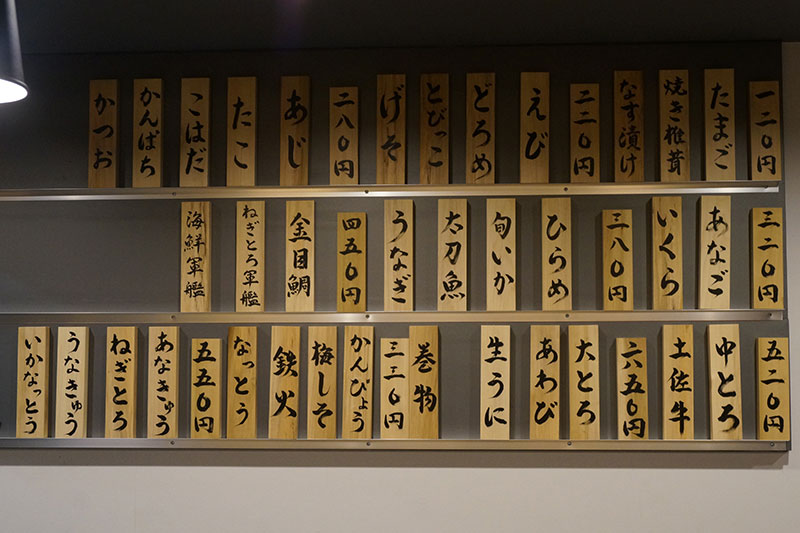 一二〇円
たまご
焼き椎茸
なす漬け
二二〇円
えび
どろめ
とびっこ
げそ
二八〇円
あじ
たこ
こはだ
かんぱち
かつお
三二〇円
あなご
いくら
三八〇円
ひらめ
旬いか
太刀魚
うなぎ
四五〇円
金目鯛
ねぎとろ軍艦
海鮮軍艦
五二〇円
中とろ
土佐牛
六五〇円
大とろ
あわび
生うに
巻物
三三〇円
かんぴょう
梅しそ
鉄火
なっとう
五五〇円
あなきゅう
ねぎとろ
うなきゅう
いかなっとう